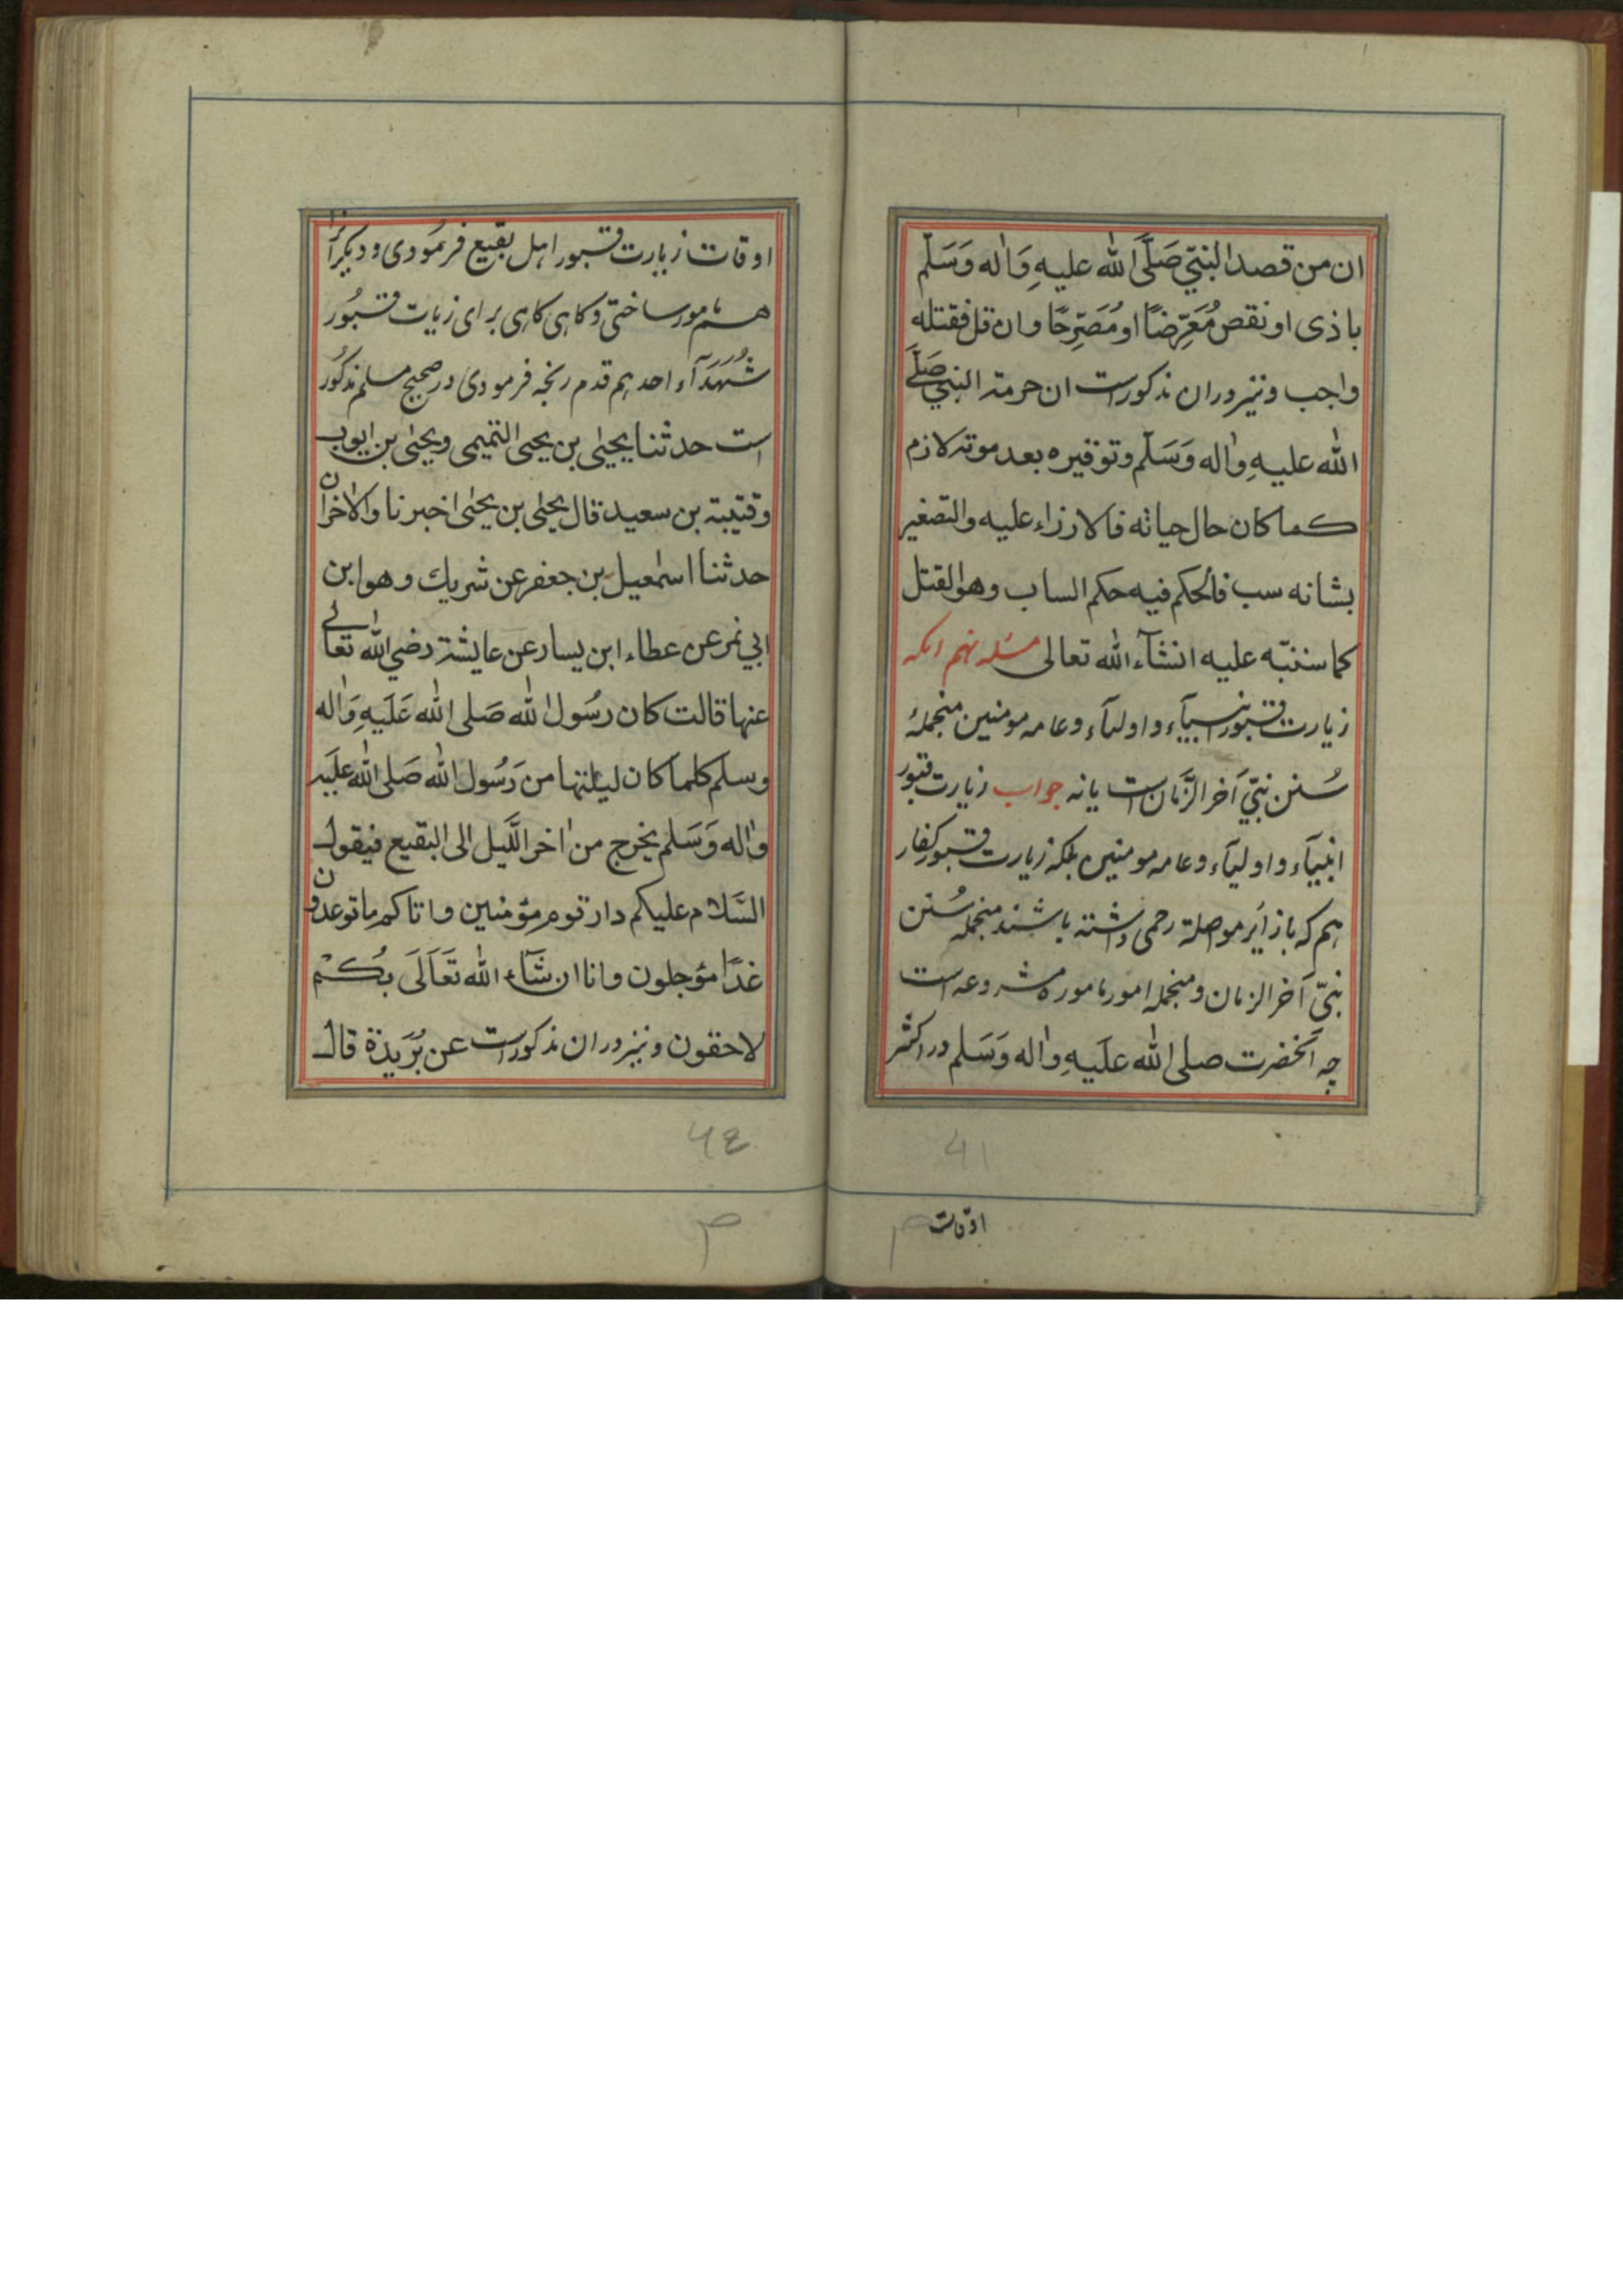 ان من قصد النبيّ صَلَّی الله علیهِ وَاٰله وَسَلّم
باذی او نقص مُعَرِّضًا او مُصَرِّحًا وان قل فقتله
واجب و نیز دران مذکورست ان حرمة النبي صَلَّی
الله علیهِ واٰله وَسَلّم وتوقیره بعد موته لازم
کما کان حال حیاته فالازراء علیه والتصغیر
بشانه سب فالحکم فیه حکم الساب وهو القتل
کما سننبّه علیه انشآء الله تعالی مسئله نهم انکه
زیارت قبور انبیآء و اولیآء و عامه مومنین منجملۂ
سُنن نبیّ آخر الزَّمان است یا نه جواب زیارت قبور
انبیآء و اولیآء و عامه مومنین بلکه زیارت قبور کفار
هم که با زایر مواصلة رحمی داشته باشند منجمله سُنن
نبیّ آخر الزمان و منجمله امور ماموره مشروعه است
چه آنحضرت صلی الله علَیهِ واٰله وَسَلم در اکثر
اوقات
اوقات زیارت قبور اهل بقیع فرمُودی و دیگرانرا
هم مامور ساختی و کاهی کاهی برای زیات قبُور
شُهَدَآء احد هم قدم رنجه فرمودی در صحیح مسلم مذکُور
است حدثنا یحیٰی بن یحیی التمیمی ویحیٰی بن ایوب
وقتیبة بن سعید قال یحیٰی بن یحیٰی اخبرنا والاخران
حدثنا اسمٰعیل بن جعفر عن شریك وهو ابن
ابي نمر عن عطاء ابن یسار عن عایشة رضي الله تعالٰی
عنها قالت کان رسُول الله صَلی الله عَلَیهِ وَاٰله
وسلم کلما کان لیلتها من رَسُول الله صَلی الله علَیه
واٰله وَسَلم یخرج من اٰخر الَّلیل الی البقیع فیقول
السَّلام علیکم دار قوم مؤمنین واتاکم ما توعدون
غدًا مؤجلون وانا ان شَآء الله تَعَالَی بکُم
لاحقون و نیز دران مذکورست عن بُرَیدَة قال
۶۱
۶۲
ص
ص